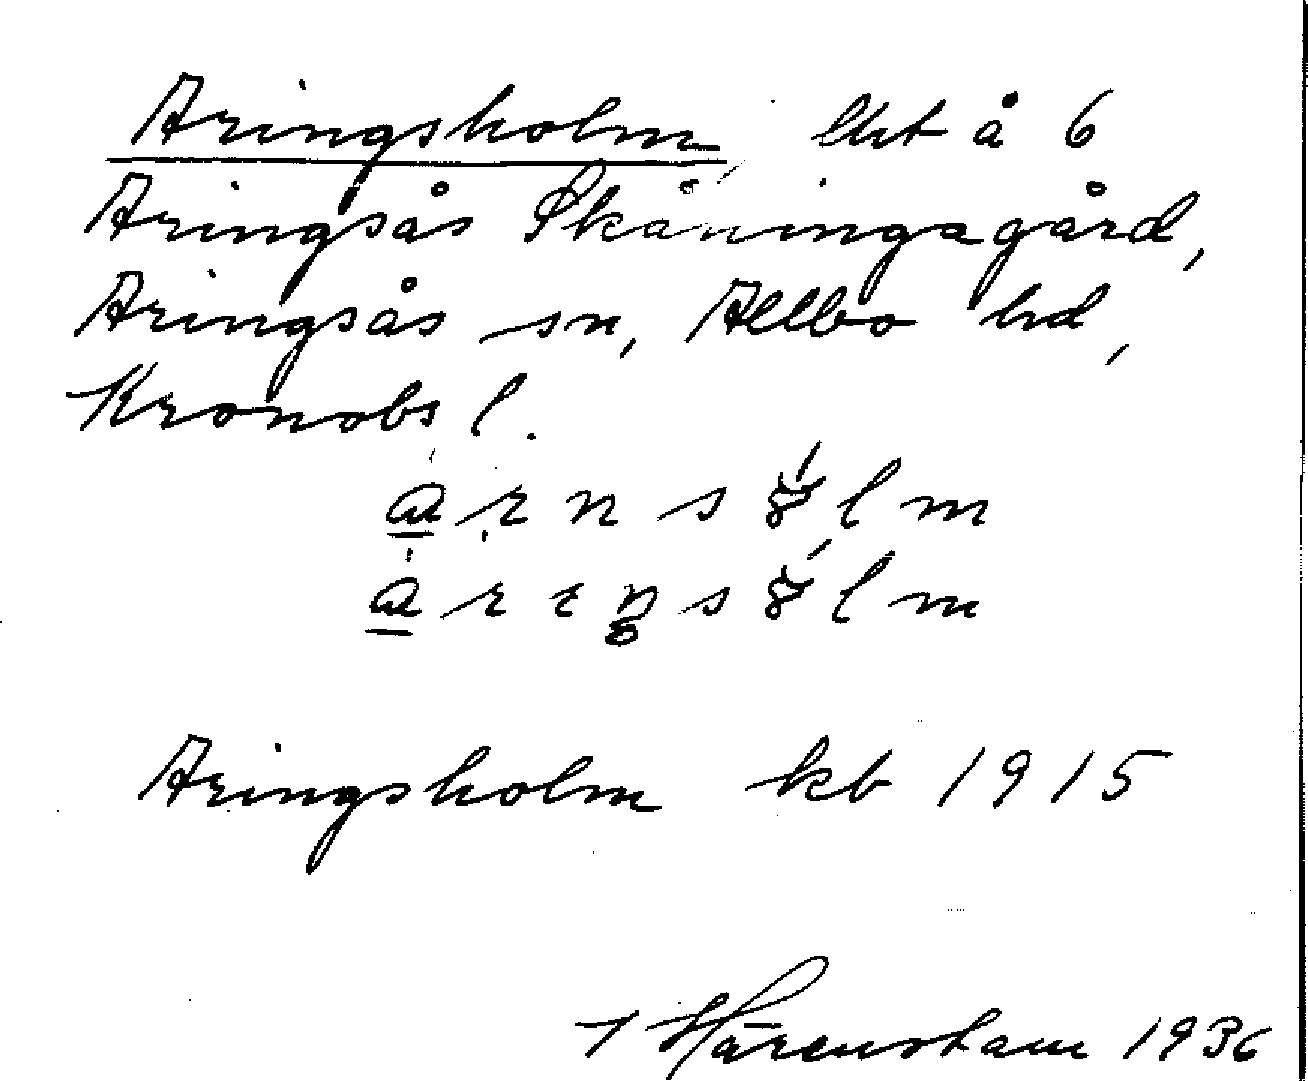 Aringsholm, lht å 6
Aringsås Skåningagård,
Aringsås sn, Allbo hd,
Kronobs l.
Aringsholm kb 1915
J Härenstam 1936